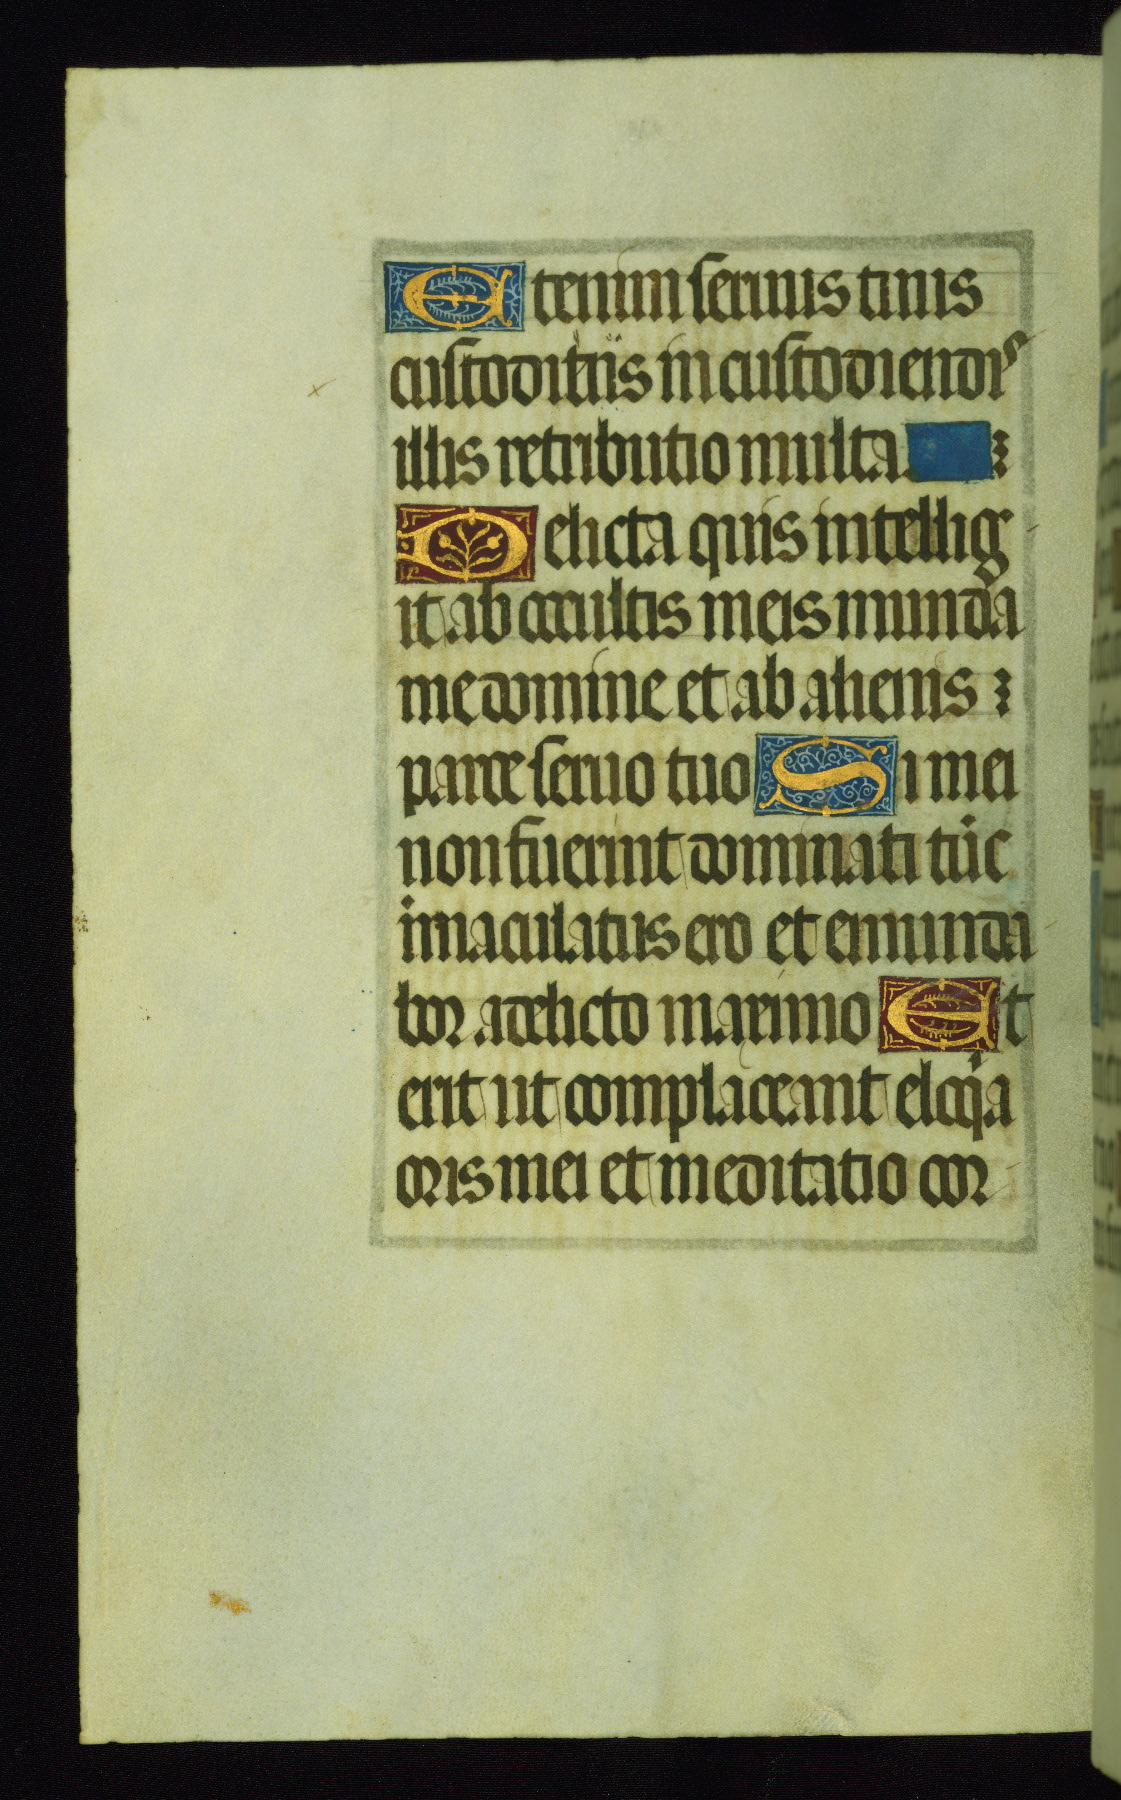 Etenim seruus tuus
custoditiis in custodiendis
illis retributio multa
Delicta quis intellig
it ab occultis meis munda
me domine et ab alienis
parce seruo tuo Si mei
non fuerint dominati tūc
imaculatus ero et emunda
bor a delicto maximo Et
erit ut complaceant eloq̇a
oris mei et meditatio cor